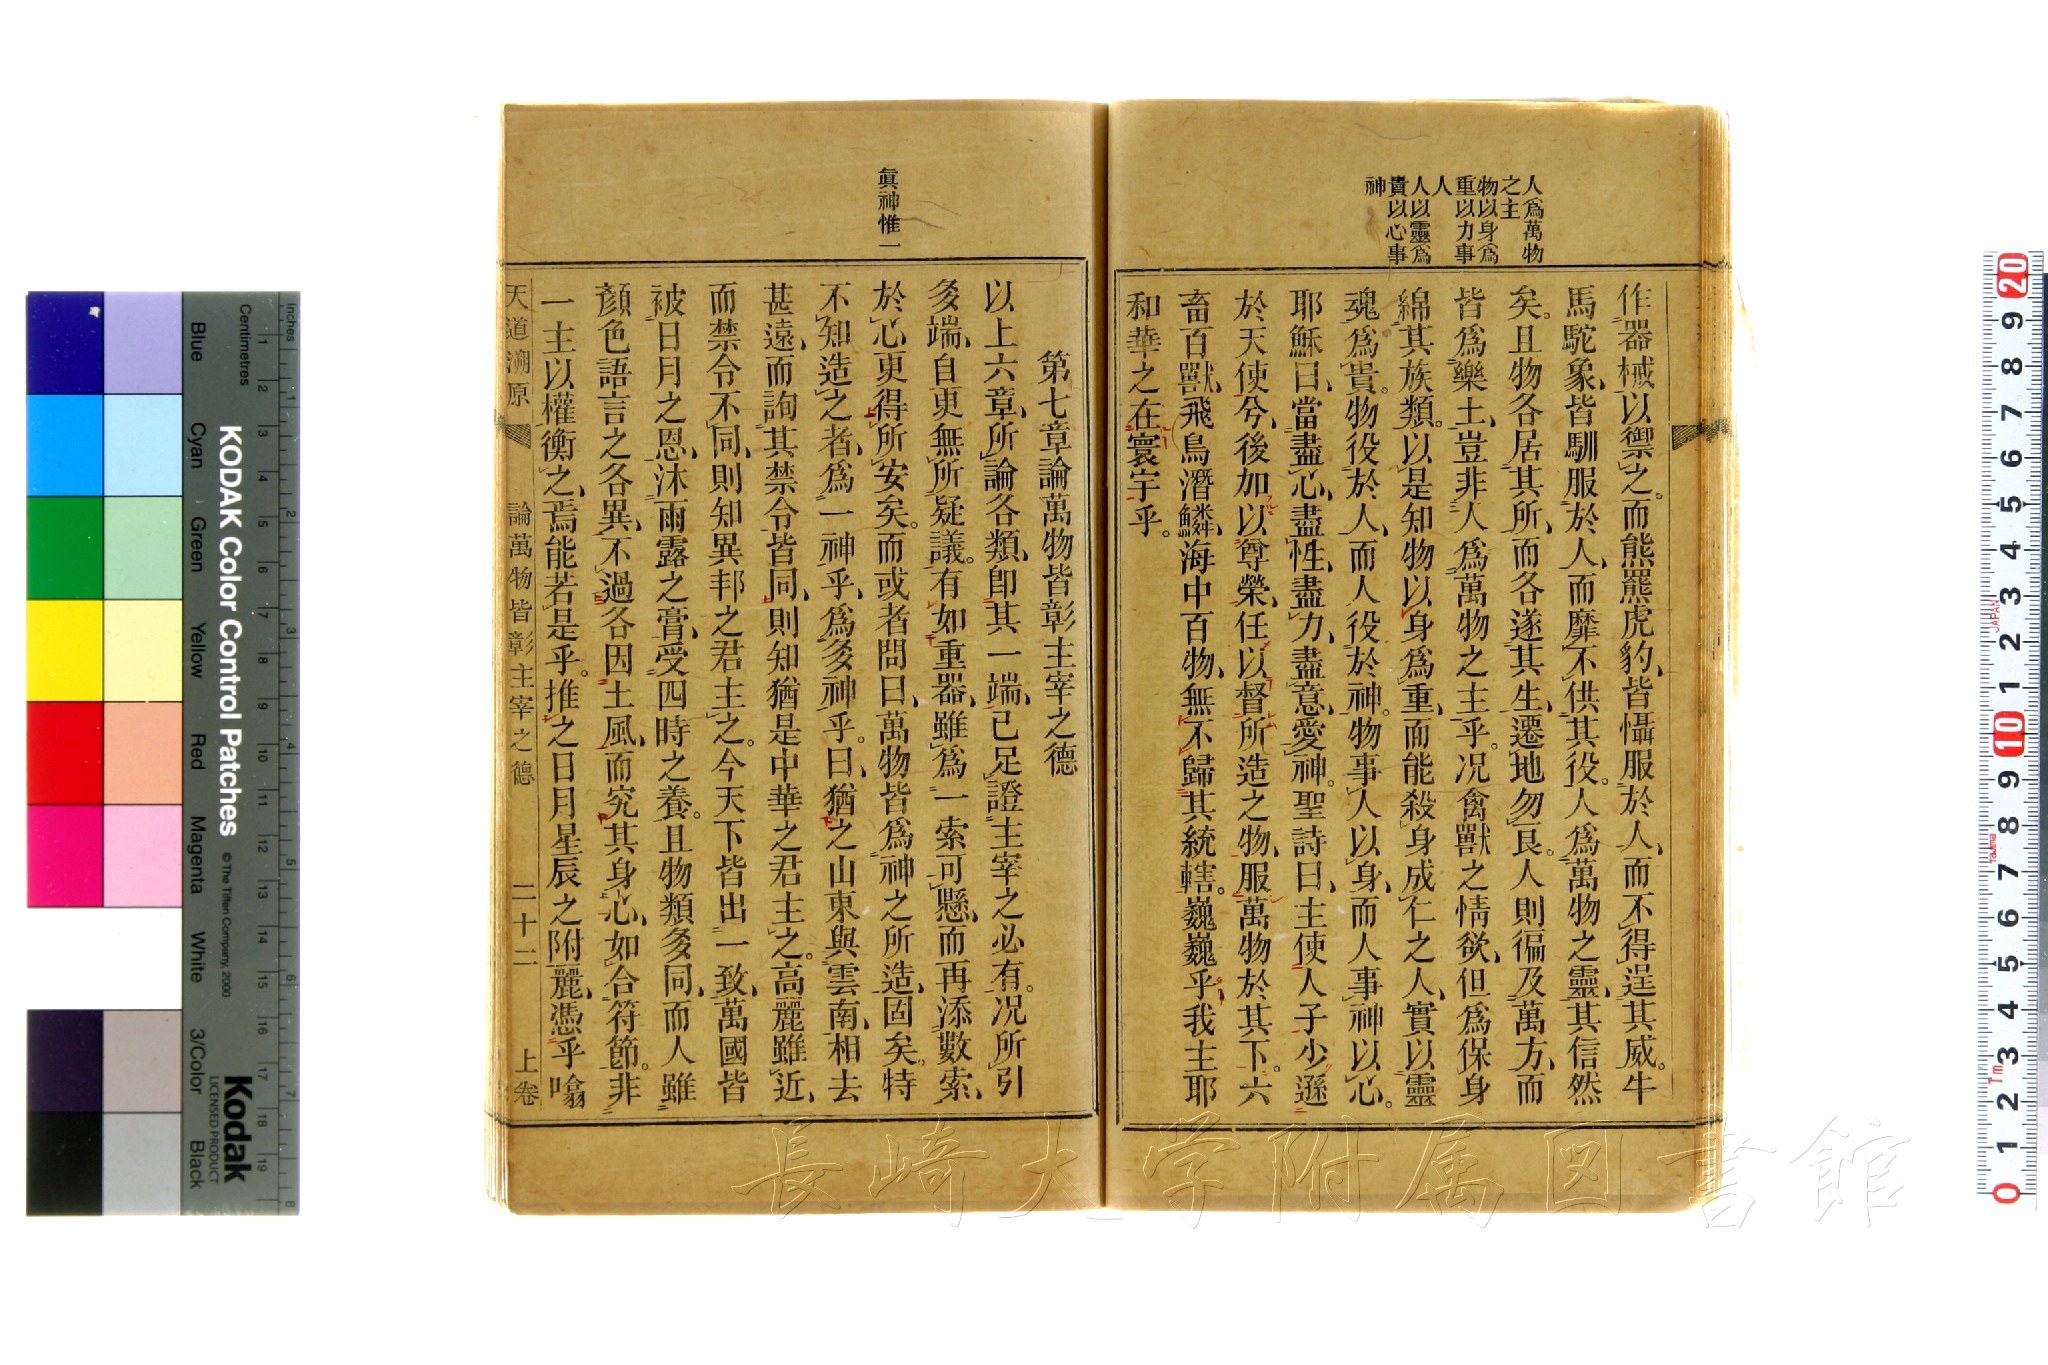 人爲萬物
之主
物以身爲
重以力事
人
人以靈爲
貴以心事
神
作器械以禦之。而熊羆虎豹、皆懾服於人、而不得逞其威。牛
馬駝象、皆馴服於人、而靡不供其役。人爲萬物之靈、其信然
矣。且物各居其所、而各遂其生、遷地勿良。人則徧及萬方、而
皆爲樂土、豈非人爲萬物之主乎。况禽獸之情欲、但爲保身
綿其族類。以是知物以身爲重、而能殺身成仁之人、實以靈
魂爲貴。物役於人、而人役於神。物事人以身、而人事神以心。
耶穌曰、當盡心、盡性、盡力、盡意、愛神。聖詩曰、主使人子少遜
於天使兮、後加以尊榮、任以督所造之物、服萬物於其下。六
畜百獸、飛鳥潛鱗、海中百物、無不歸其統轄。巍巍乎。我主耶
和華之在寰宇乎。
眞神惟一
第七章論萬物皆彰主宰之德
以上六章、所論各類、卽其一端、已足證主宰之必有。况所引
多端、自更無所疑議。有如重器、雖爲一索可懸、而再添數索、
於心更得所安矣。而或者問曰、萬物皆爲神之所造、固矣。特
不知造之者、爲一神乎、爲多神乎。曰、猶之山東與雲南、相去
甚遠、而詢其禁令皆同、則知猶是中華之君主之。高麗雖近、
而禁令不同、則知異邦之君主之。今天下皆出一致、萬國皆
被日月之恩、沐雨露之膏、受四時之養。且物類多同、而人雖
顏色語言之各異、不過各因土風、而究其身心、如合符節。非
一主以權衡之、焉能若是乎。推之日月星辰之附麗、憑乎噏
天道溯原
論萬物皆彰主宰之德
二十二
上卷
長崎大学附属図書館
KODAK Color Control Patches
© The Tiffen Company, 2000
Kodak
LICENSED PRODUCT
Inches
Centimetres
Blue
Cyan
Green
Yellow
Red
Magenta
White
3/Color
Black
JAPAN